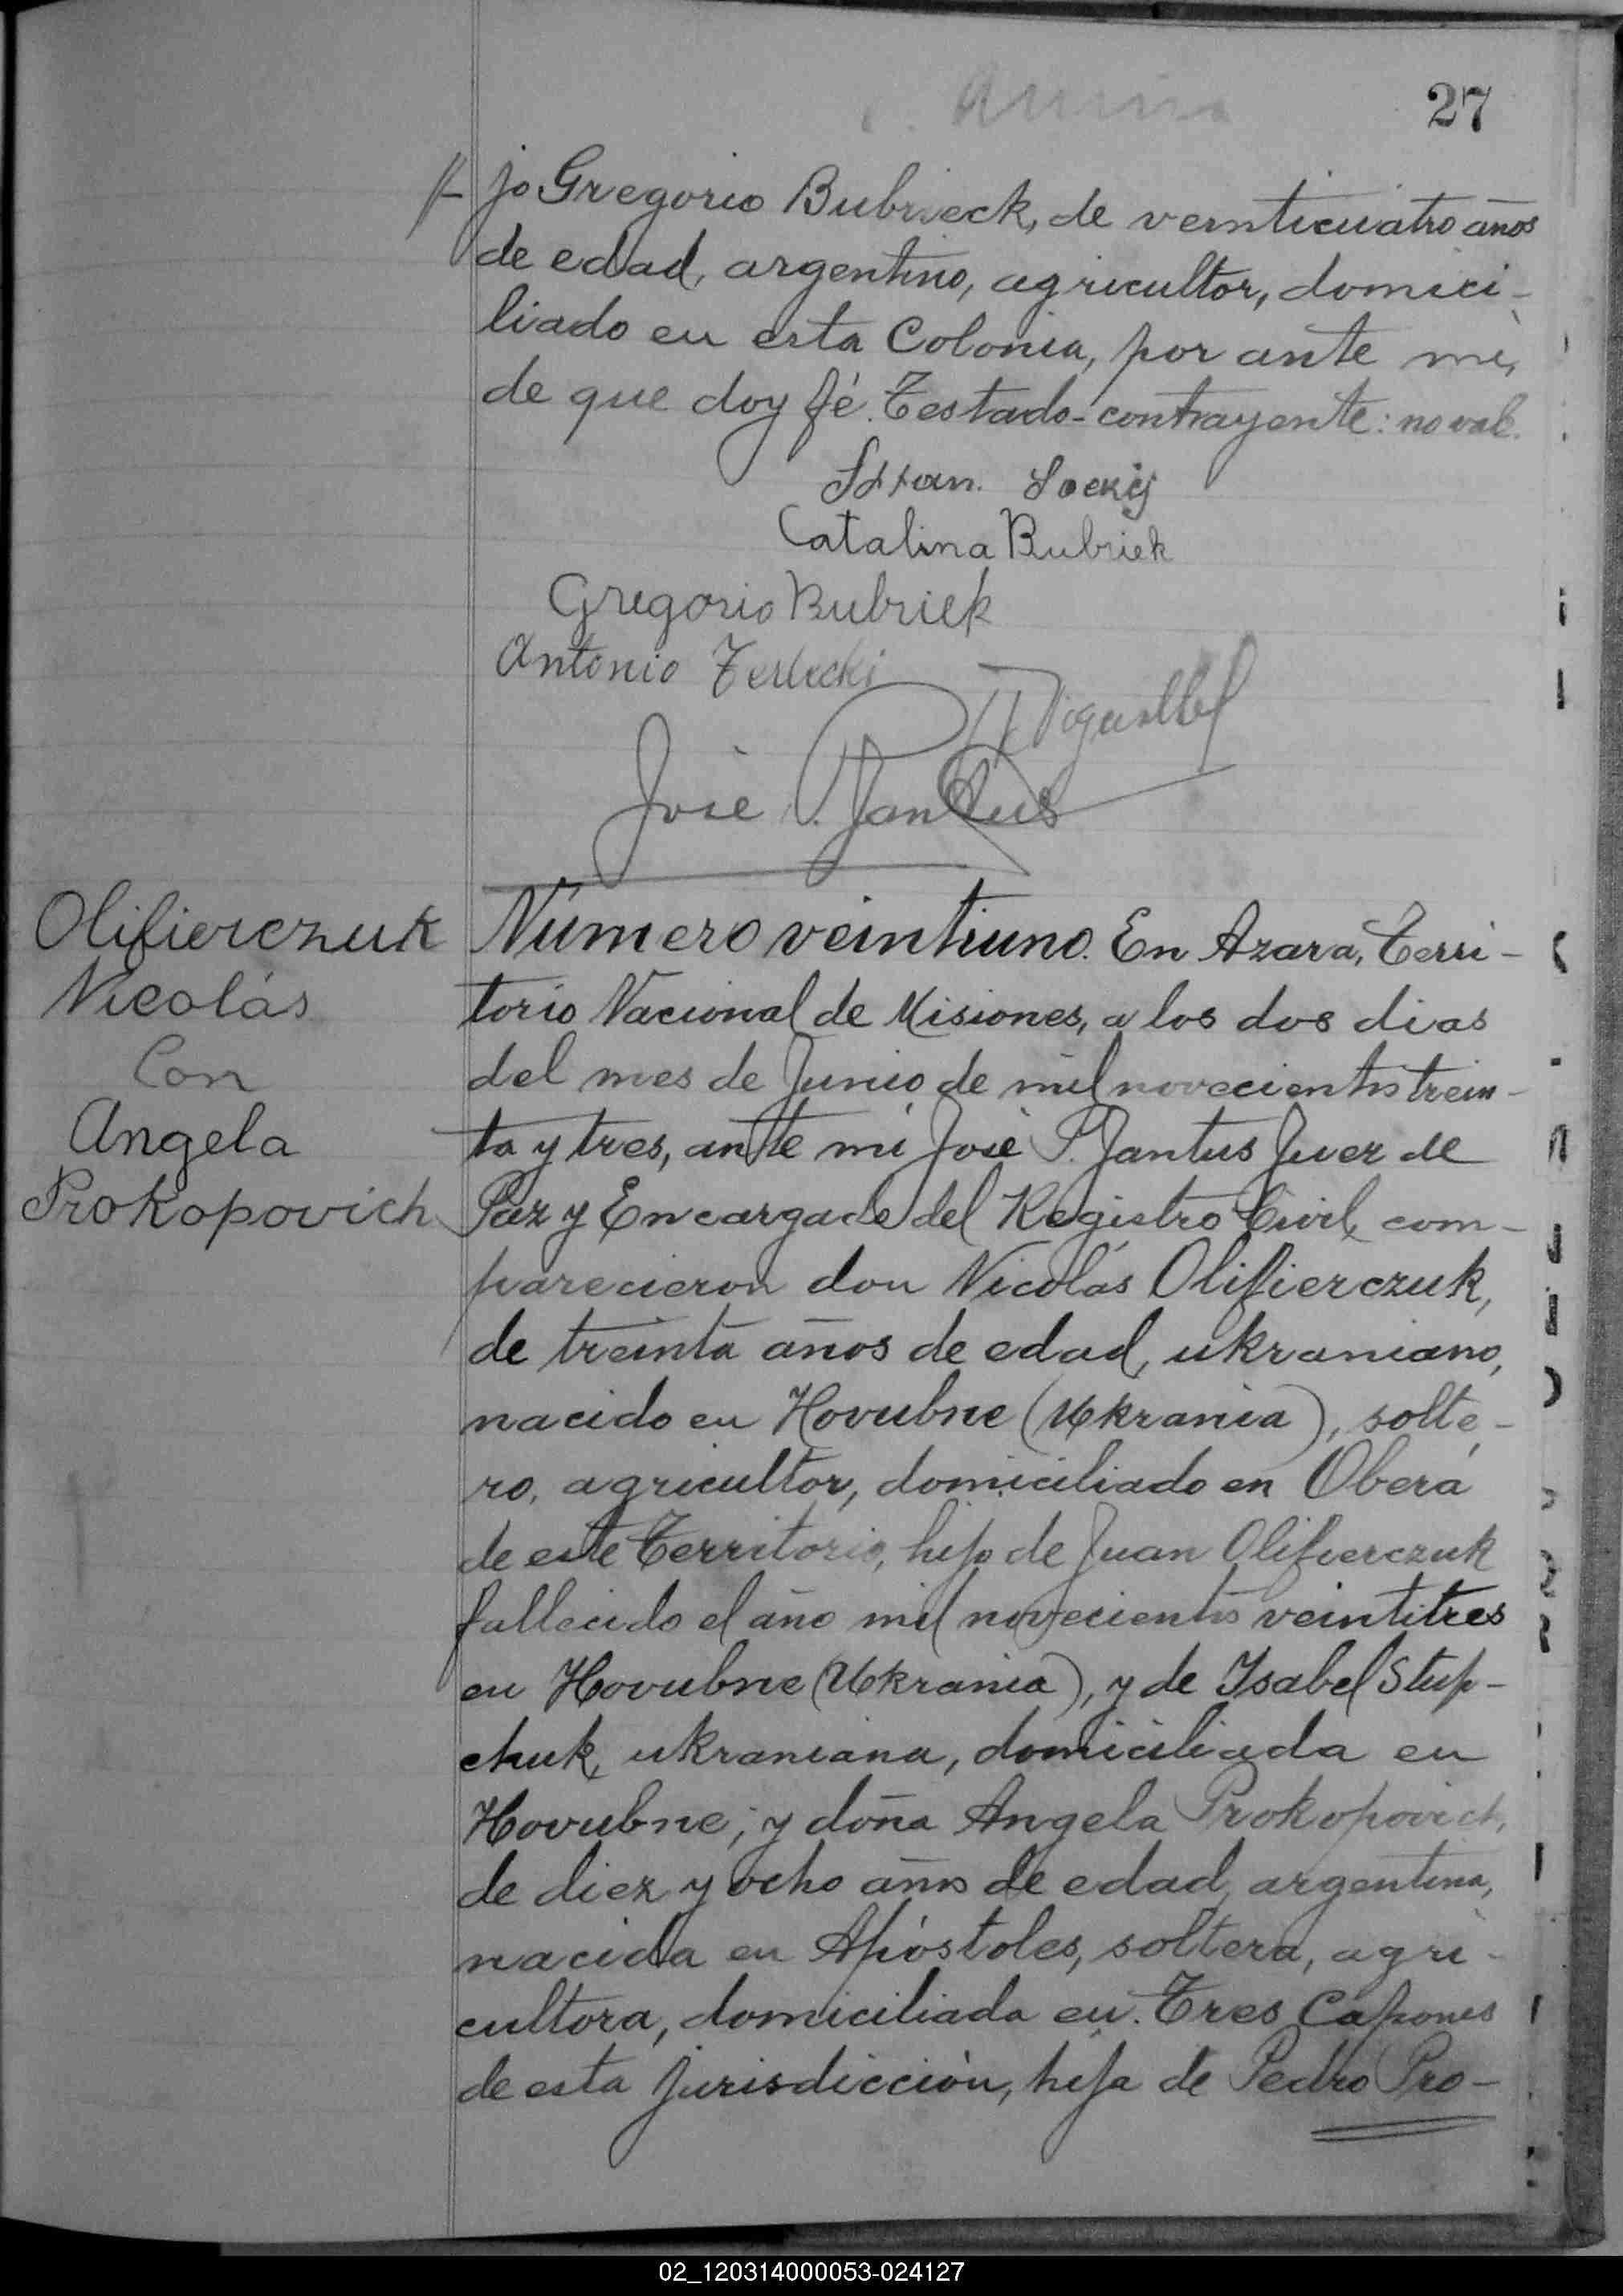 27
jo Gregorio Bubrieck, de veinticuatro años
de edad, argentino, agricultor, domici-
liado en esta Colonia, por ante mi,
de que doy fé. Testado-contrayente: no vale.
Catalina Bubriek
Gregorio Bubriek
Antonio Terlecki
José P. Jantus
Olifierczuk
Nicolás
Con
Angela
Prokopovich
Número veintiuno. En Azara, Terri-
torio Nacional de Misiones, a los dos dias
del mes de Junio de mil novecientos trein-
ta y tres, ante mi José P. Jantus Juez de
Paz y Encargado del Registro Civil, com-
parecieron don Nicolás Olifierczuk,
de treinta años de edad, ukraniano,
nacido en Hovubne (Ukrania), solte-
ro, agricultor, domiciliado en Oberá
de este Territorio, hijo de Juan Olifierczuk
fallecido el año mil novecientos veintitres
en Hovubne (Ukrania), y de Isabel Stup-
chuk, ukraniana, domiciliada en
Hovubne; y doña Angela Prokopovich,
de diez y ocho años de edad, argentina,
nacida en Apóstoles, soltera, agri-
cultora, domiciliada en Tres Capones
de esta jurisdicción, hija de Pedro Pro-
02_120314000053-024127